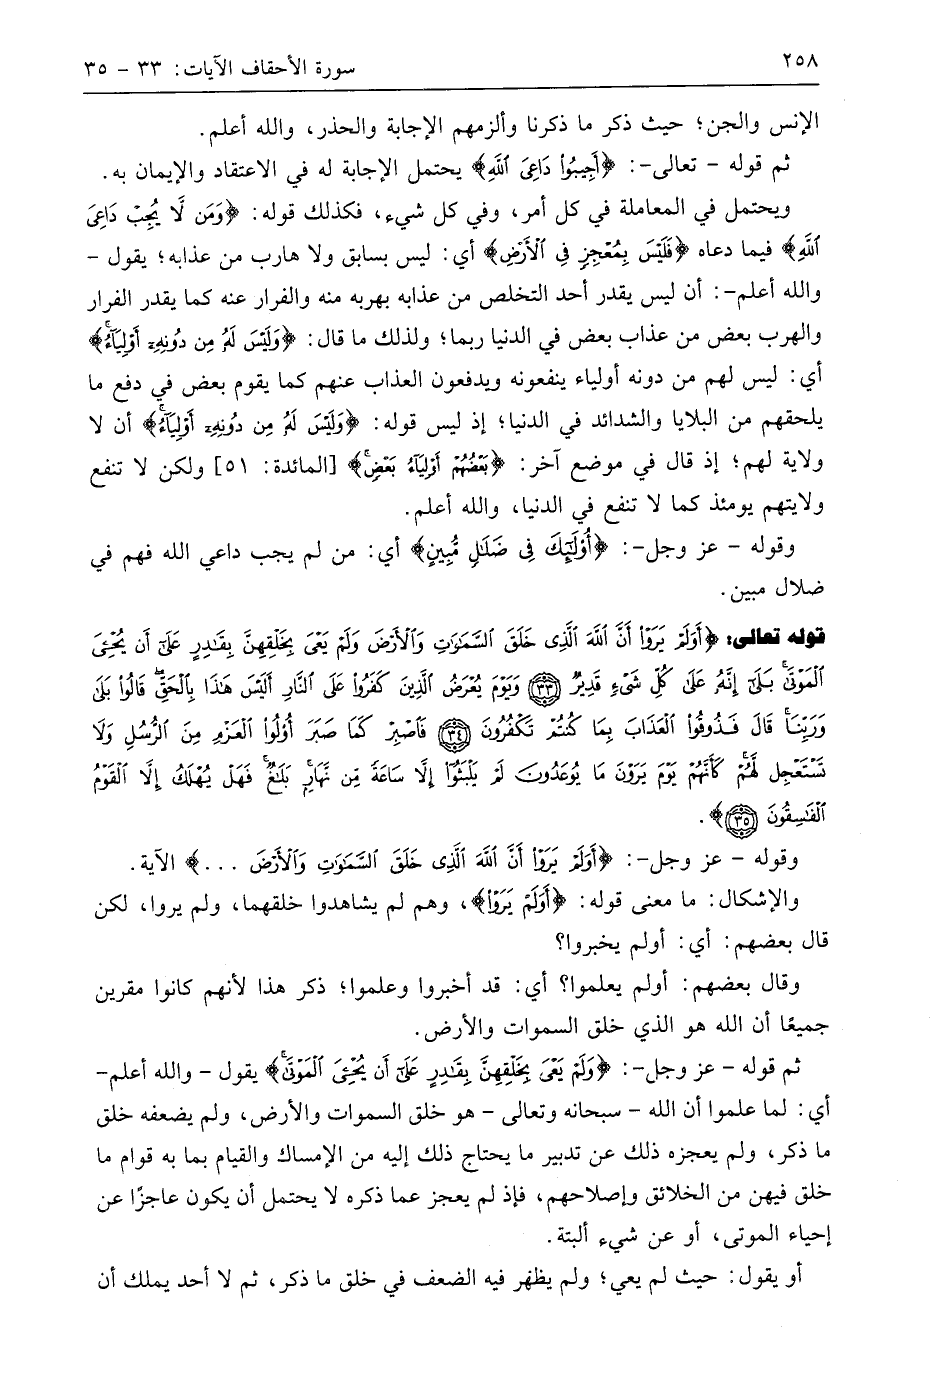 ٢٥٨
سورة الأحقاف الآيات: ٣٣ - ٣٥
الإنس والجن؛ حيث ذكر ما ذكرنا وألزمهم الإجابة والحذر، والله أعلم.
ثم قوله - تعالى-: ﴿أَجِيبُواْ دَاعِيَ ٱللَّهِ﴾ يحتمل الإجابة له في الاعتقاد والإيمان به.
ويحتمل في المعاملة في كل أمر، وفي كل شيء، فكذلك قوله: ﴿وَمَن لَّا يُجِبۡ دَاعِيَ
ٱللَّهِ﴾ فيما دعاه ﴿فَلَيۡسَ بِمُعۡجِزٖ فِي ٱلۡأَرۡضِ﴾ أي: ليس بسابق ولا هارب من عذابه؛ يقول -
والله أعلم-: أن ليس يقدر أحد التخلص من عذابه بهربه منه والفرار عنه كما يقدر الفرار
والهرب بعض من عذاب بعض في الدنيا ربما؛ ولذلك ما قال: ﴿وَلَيۡسَ لَهُۥ مِن دُونِهِۦٓ أَوۡلِيَآءُۚ﴾
أي: ليس لهم من دونه أولياء ينفعونه ويدفعون العذاب عنهم كما يقوم بعض في دفع ما
يلحقهم من البلايا والشدائد في الدنيا؛ إذ ليس قوله: ﴿وَلَيۡسَ لَهُۥ مِن دُونِهِۦٓ أَوۡلِيَآءُۚ﴾ أن لا
ولاية لهم؛ إذ قال في موضع آخر: ﴿بَعۡضُهُمۡ أَوۡلِيَآءُ بَعۡضٖۚ﴾ [المائدة: ٥١] ولكن لا تنفع
ولايتهم يومئذ كما لا تنفع في الدنيا، والله أعلم.
وقوله - عز وجل-: ﴿أُوْلَٰٓئِكَ فِي ضَلَٰلٖ مُّبِينٍ﴾ أي: من لم يجب داعي الله فهم في
ضلال مبين.
قوله تعالى: ﴿أَوَلَمۡ يَرَوۡاْ أَنَّ ٱللَّهَ ٱلَّذِي خَلَقَ ٱلسَّمَٰوَٰتِ وَٱلۡأَرۡضَ وَلَمۡ يَعۡيَ بِخَلۡقِهِنَّ بِقَٰدِرٍ عَلَىٰٓ أَن يُحۡـِۧيَ
ٱلۡمَوۡتَىٰۚ بَلَىٰٓ إِنَّهُۥ عَلَىٰ كُلِّ شَيۡءٖ قَدِيرٞ ﴿٣٣﴾ وَيَوۡمَ يُعۡرَضُ ٱلَّذِينَ كَفَرُواْ عَلَى ٱلنَّارِ أَلَيۡسَ هَٰذَا بِٱلۡحَقِّۖ قَالُواْ بَلَىٰ
وَرَبِّنَاۚ قَالَ فَذُوقُواْ ٱلۡعَذَابَ بِمَا كُنتُمۡ تَكۡفُرُونَ ﴿٣٤﴾ فَٱصۡبِرۡ كَمَا صَبَرَ أُوْلُواْ ٱلۡعَزۡمِ مِنَ ٱلرُّسُلِ وَلَا
تَسۡتَعۡجِل لَّهُمۡۚ كَأَنَّهُمۡ يَوۡمَ يَرَوۡنَ مَا يُوعَدُونَ لَمۡ يَلۡبَثُوٓاْ إِلَّا سَاعَةٗ مِّن نَّهَارِۭۚ بَلَٰغٞۚ فَهَلۡ يُهۡلَكُ إِلَّا ٱلۡقَوۡمُ
ٱلۡفَٰسِقُونَ ﴿٣٥﴾﴾.
وقوله - عز وجل-: ﴿أَوَلَمۡ يَرَوۡاْ أَنَّ ٱللَّهَ ٱلَّذِي خَلَقَ ٱلسَّمَٰوَٰتِ وَٱلۡأَرۡضَ ...﴾ الآية.
والإشكال: ما معنى قوله: ﴿أَوَلَمۡ يَرَوۡاْ﴾، وهم لم يشاهدوا خلقهما، ولم يروا، لكن
قال بعضهم: أي: أولم يخبروا؟
وقال بعضهم: أولم يعلموا؟ أي: قد أخبروا وعلموا؛ ذكر هذا لأنهم كانوا مقرين
جميعًا أن الله هو الذي خلق السموات والأرض.
ثم قوله - عز وجل-: ﴿وَلَمۡ يَعۡيَ بِخَلۡقِهِنَّ بِقَٰدِرٍ عَلَىٰٓ أَن يُحۡـِۧيَ ٱلۡمَوۡتَىٰۚ﴾ يقول - والله أعلم-
أي: لما علموا أن الله - سبحانه وتعالى - هو خلق السموات والأرض، ولم يضعفه خلق
ما ذكر، ولم يعجزه ذلك عن تدبير ما يحتاج ذلك إليه من الإمساك والقيام بما به قوام ما
خلق فيهن من الخلائق وإصلاحهم، فإذ لم يعجز عما ذكره لا يحتمل أن يكون عاجزًا عن
إحياء الموتى، أو عن شيء ألبتة.
أو يقول: حيث لم يعي؛ ولم يظهر فيه الضعف في خلق ما ذكر، ثم لا أحد يملك أن